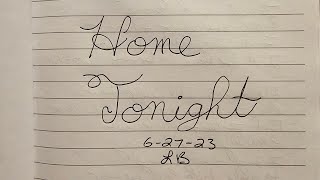 Home
Tonight
6-27-23
LB